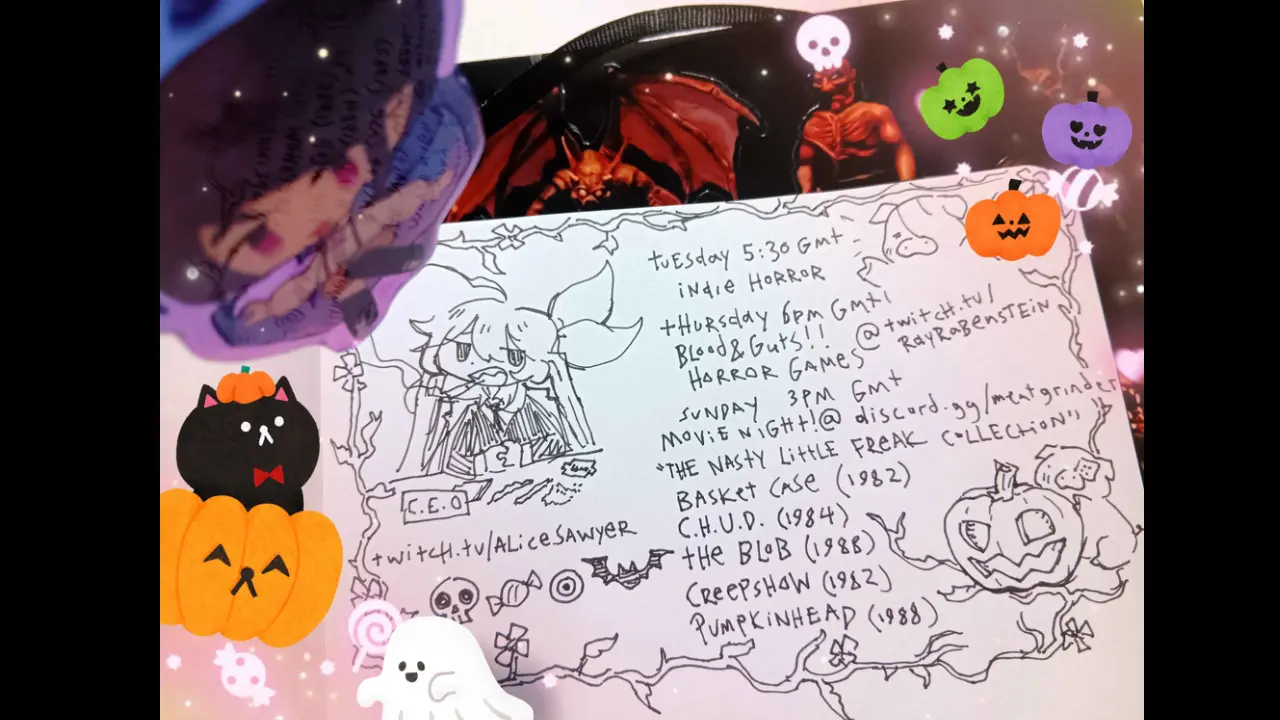 tuesday 5:30 GMT
indie HORROR
tHURSday 6pm GMT!
BLood&Guts!! @twitch.tv/
HORROR GAMES RAYRABENSTEIN
SUNDAY 3PM GMT
MOVIE NIGHT!@ discord.gg/meatgrinder
"THE NASTY LITTLE FREAK COLLECTION"
BASKET CASE (1982)
C.H.U.D. (1984)
tHE BLOB (1988)
CREEPSHOW (1982)
PUMPKINHEAD (1988)
C.E.O
twitch.tv/ALiceSAWYER